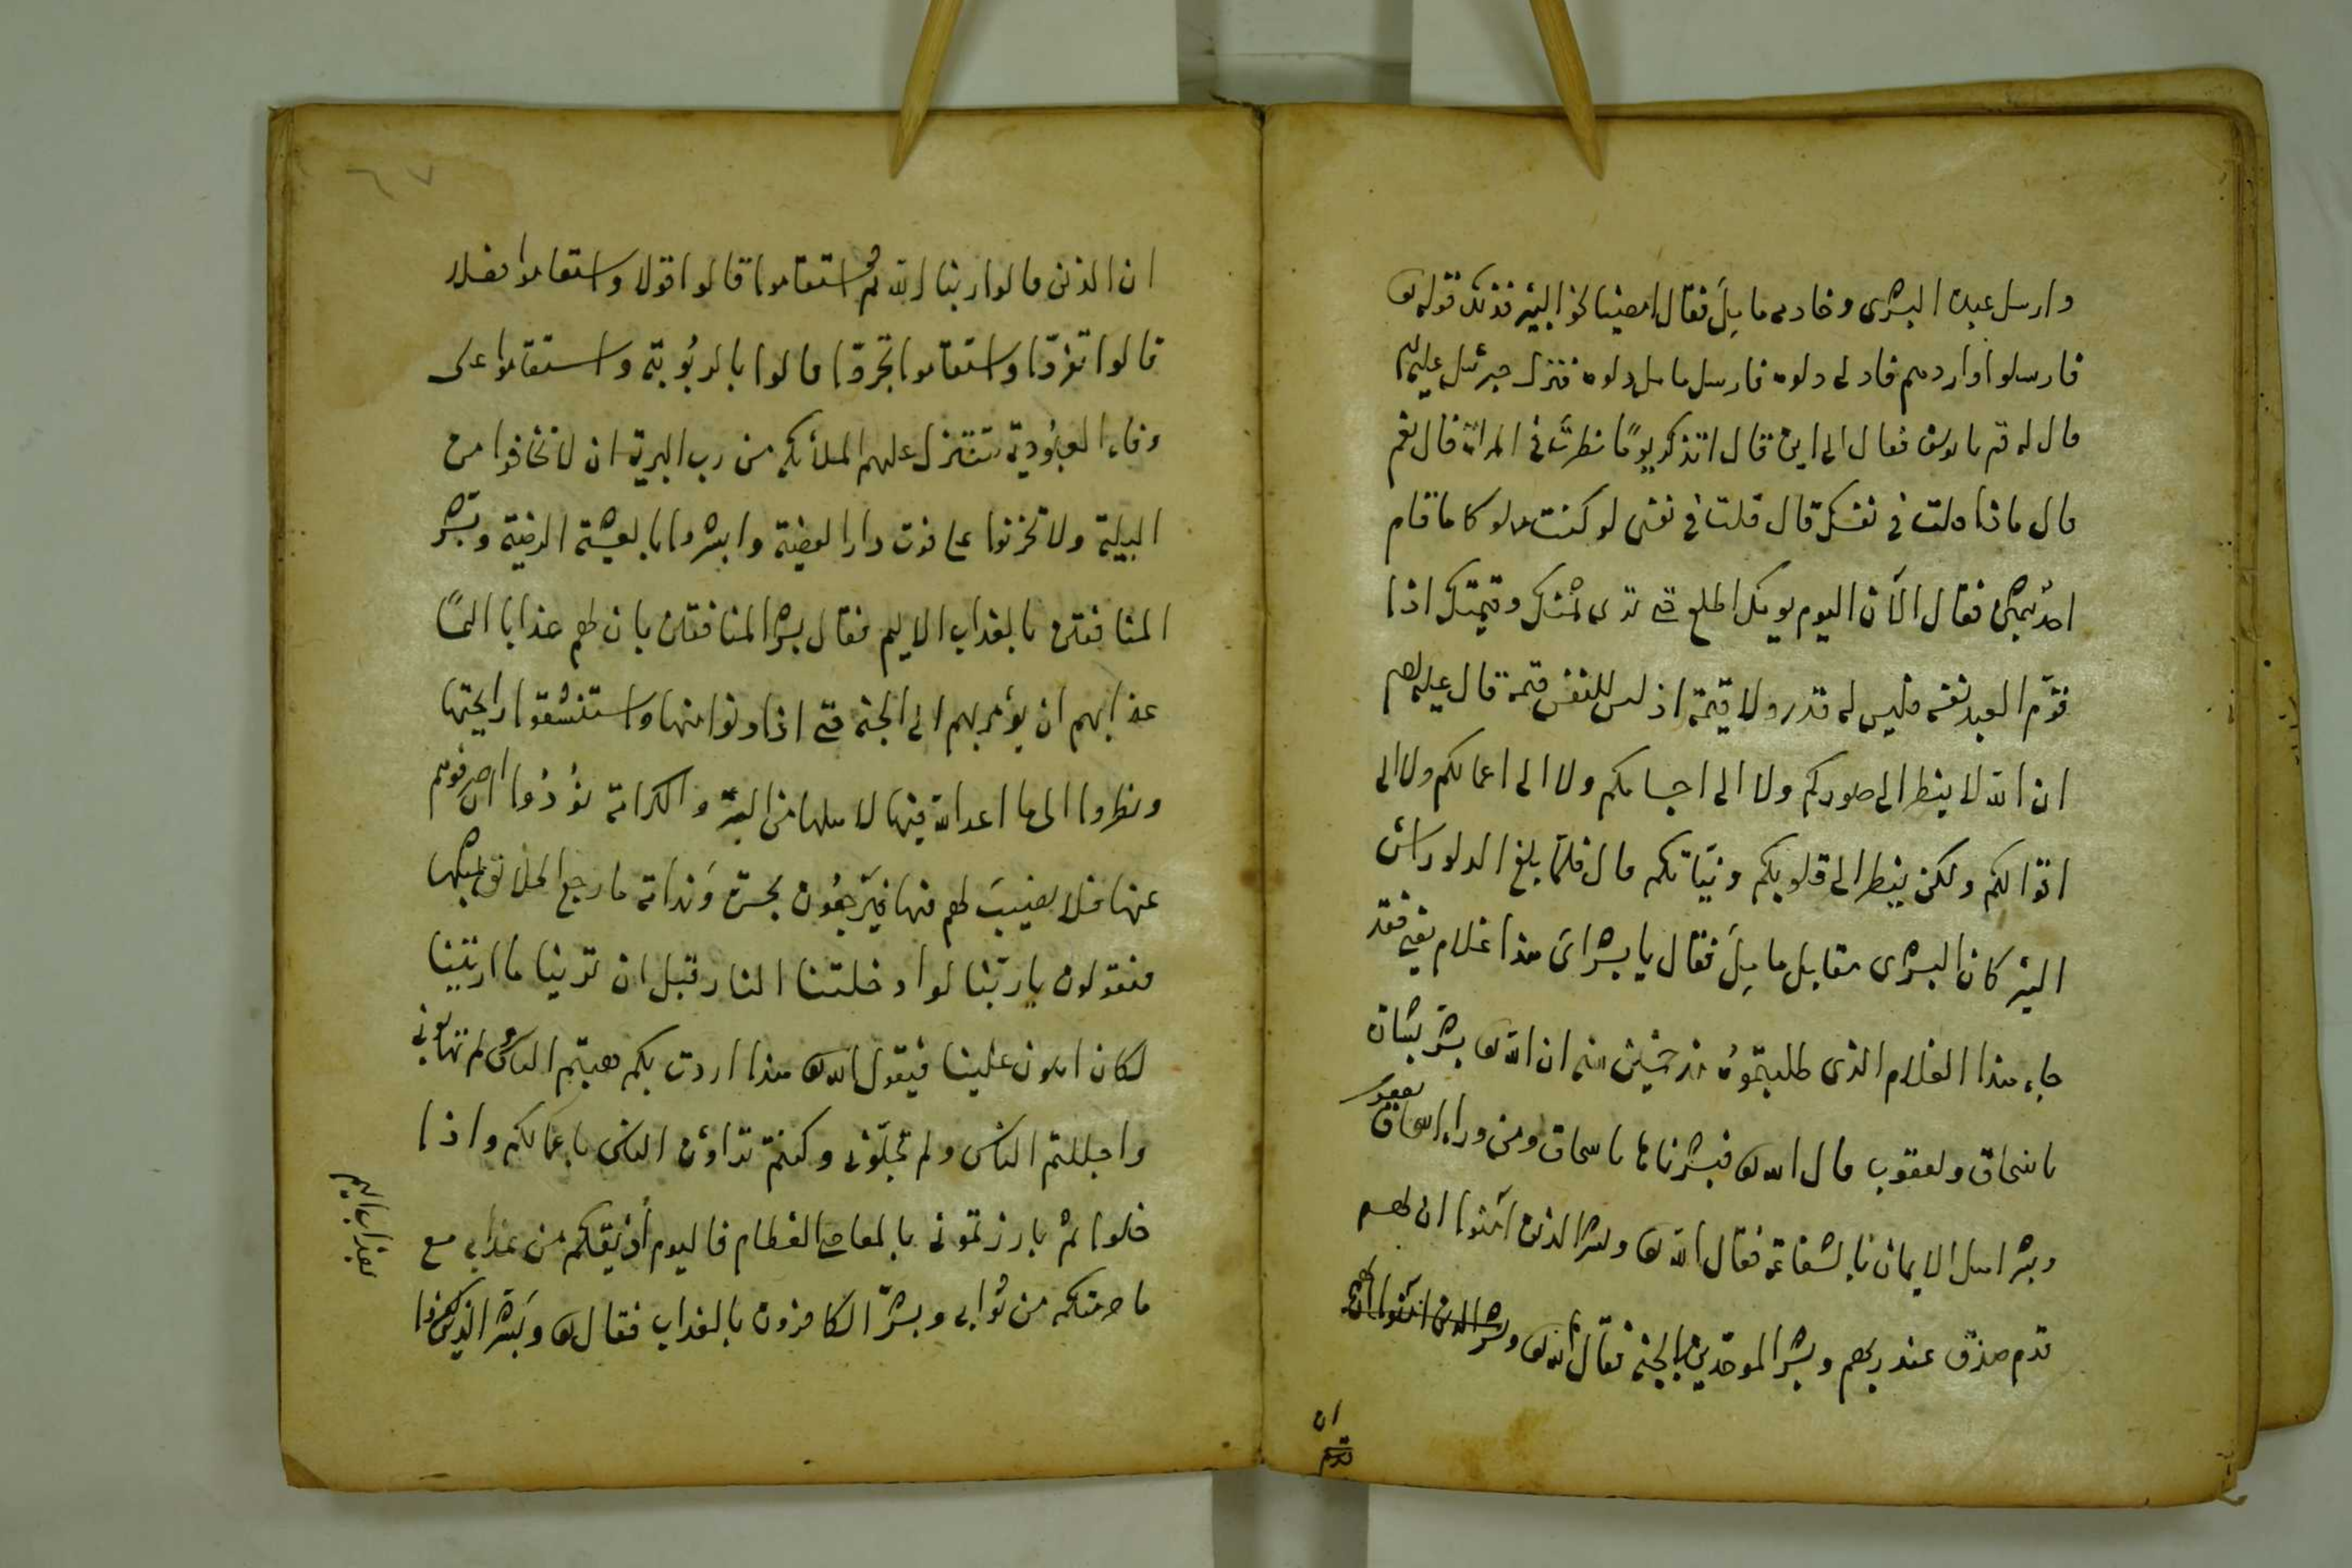 وارسل عبده البشرى وخادمه مابل فقال امضيا نحو البئر فذلك قوله تع
فارسلوا واردهم فادلى دلوه فارسل مابل دلوه فنزل جبرئيل عليه السلام
قال له قم يا يوسف فقال الى اين قال اتذكر يومًا نظرت في المرآة قال نعم
قال ماذا قلت في نفسك قال قلت في نفسى لو كنت مملوكا ما قام
احد بثمنى فقال الآن اليوم يومك اطلع حتى ترى ثمنك وقيمتك اذا
قوّم العبد نفسه فليس له قدر ولا قيمة اذ ليس للنفس قيمة قال عليه السلام
ان الله لا ينظر الى صوركم ولا الى اجسامكم ولا الى اعمالكم ولا الى
اقوالكم ولكن ينظر الى قلوبكم ونيّاتكم قال فلمّا بلغ الدلو راس
البئر كان البشرى مقابل مابل فقال يا بشراى هذا غلام يعني فقد
جاء هذا الغلام الذى طلبتموه منذ خمسين سنه ان الله تع بشر بشارة
باسحاق ويعقوب قال الله تع فبشرناها باسحاق ومن وراء اسحاق يعقوب
وبشر اهل الايمان بالشفاعة فقال الله تع وبشر الذين آمنوا ان لهم
قدم صدق عند ربهم وبشر الموحّدين بالجنة فقال الله تع وبشر الذين آمنوا ان لهم
ان
قدم
٦٧
ان الذين قالوا ربنا الله ثم استقاموا قالوا قولا واستقاموا فعلا
قالوا تفرّدا واستقاموا تجرّدا قالوا بالربُوبيّة واستقاموا على
وفاء العبُوديّة تتنزل عليهم الملائكة من رب البرية ان لا تخافوا من
البلية ولا تحزنوا على فوت دار وابشروا بالعيشة الرضية وبشر
المنافقين بالعذاب الاليم فقال بشر المنافقين بان لهم عذابا اليمًا
عذابهم ان يؤمر بهم الى الجنة حتى اذا دنوا منها واستنشقوا رايحتها
ونظروا الى ما اعد الله فيها لاهلها من والكرامة نُودُوا ان اصرفوهم
عنها فلا نصيبَ لهم فيها فيَرجعُون بحسرة وَندامة ما رجع الخلائق بمثلها
فيقولون يا ربّنا لو ادخلتنا النار قبل ان ترينا ما اريتنا
لكان اهون علينا فيقول الله تع هذا اردت بكم هبتم الناس ولم تهابونى
واجللتم الناس ولم تجلّونى وكنتم تراؤن الناس باعمالكم واذا
خلوتم بارزتمونى بالمعاصى العظام فاليوم أذيقكم من عذابى مع
ما حرمتكم من ثوابى وبشّر الكافرون بالعذاب فقال تع وبَشّر الذين كفروا
بعذاب اليم